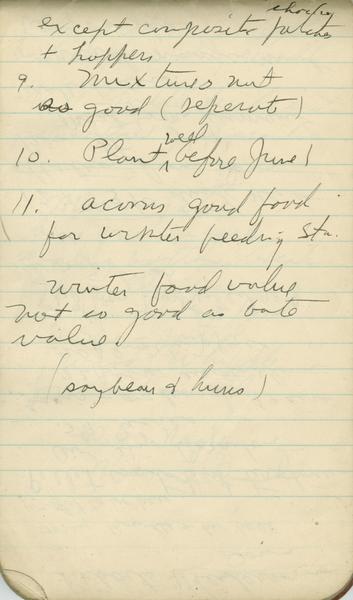 except composite patches
+ hoppers
9. Mixtures not
good (seperate)
10. Plant well before June 1
11. acorns good food
for winter feeding sta.
winter food value
not so good as bate
value
(soybean &